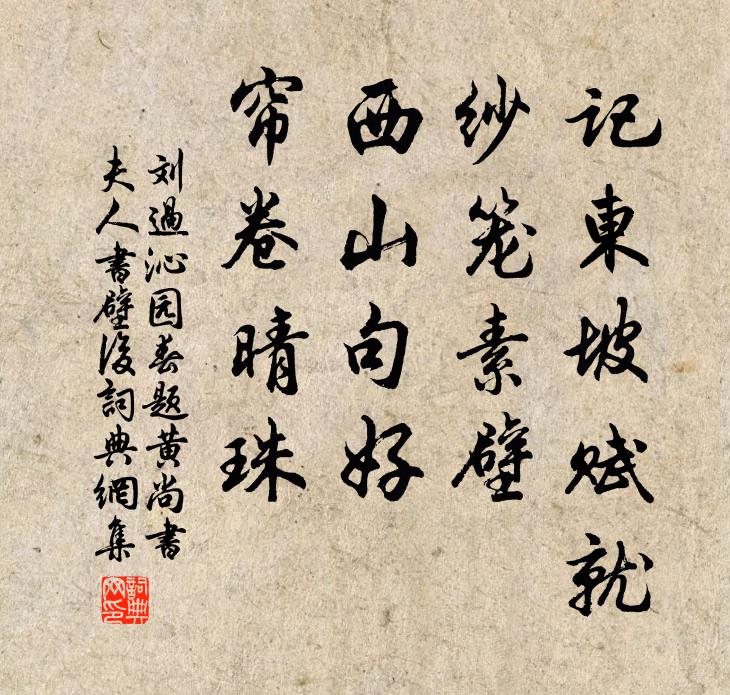 记東坡赋就
纱笼素壁
西山句好
帘卷晴珠
刘過沁园春題黄尚書
夫人書壁後詞典網集
詞典
网印